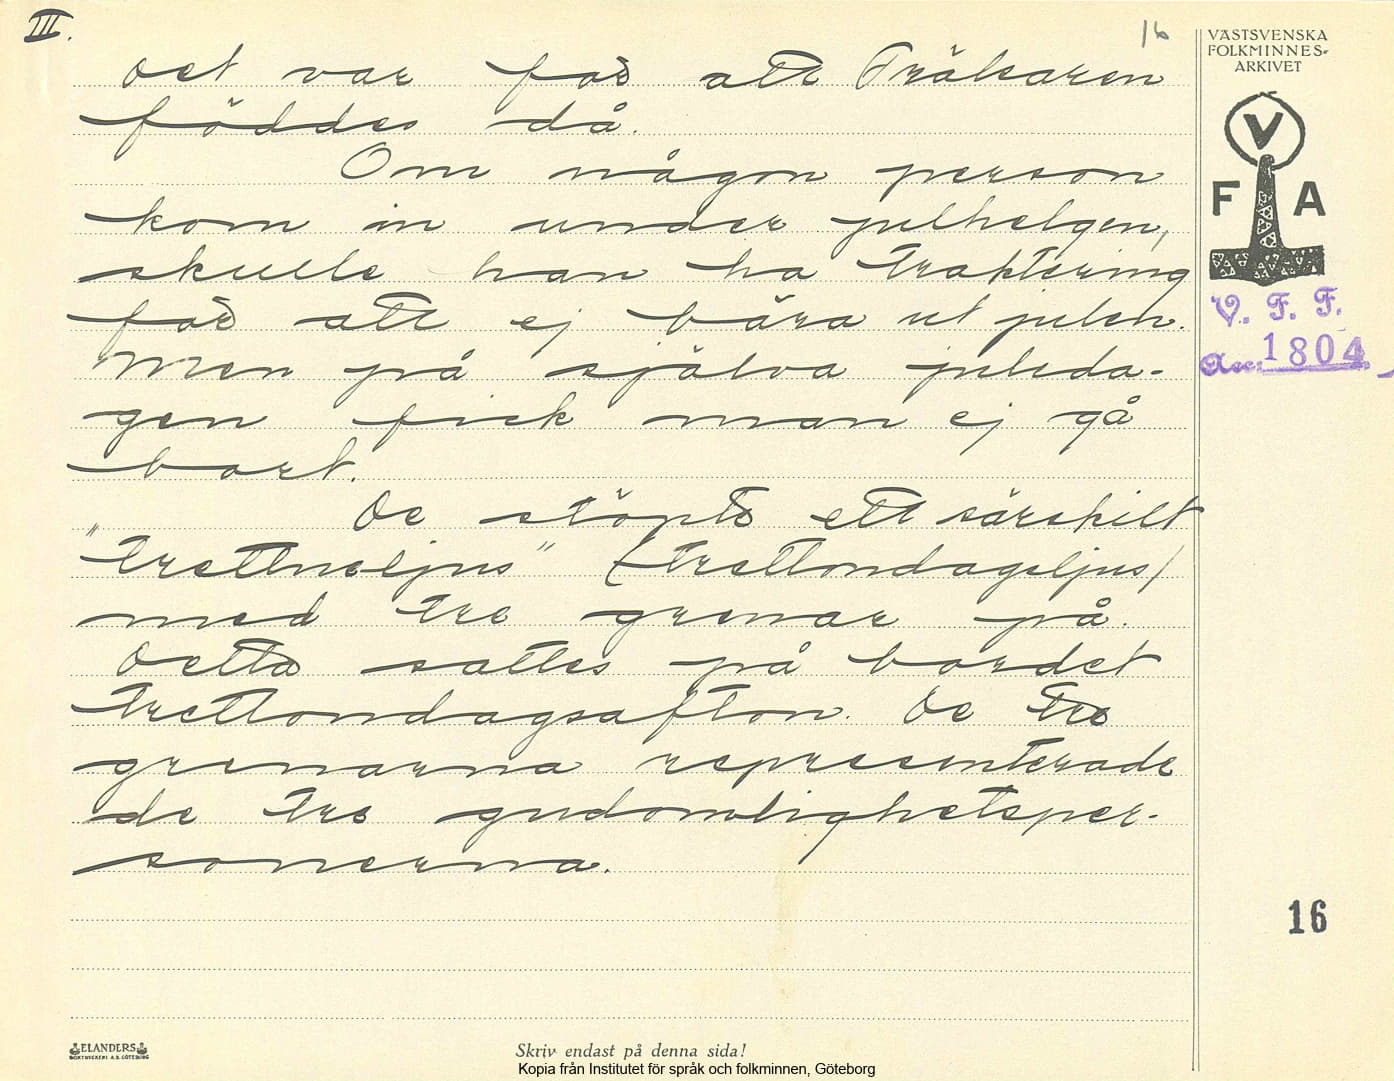 III.
16
VÄSTSVENSKA
FOLKMINNES-
ARKIVET
V
F A
V. F. F.
Acc: 1804
det var för att Frälsaren
föddes då.
Om någon person
kom in under julhelgen,
skulle han ha traktering
för att ej bära ut julen.
Men på själva julda-
gen fick man ej gå
bort.
De stöpte ett särskilt
"trettneljus" (trettondagsljus)
med tre grenar på.
Detta sattes på bordet
trettondagsafton. De tre
grenarna representerade
de tre gudomlighetsper-
sonerna.
16
ELANDERS
BOKTRYCKERI A.B. GÖTEBORG
Skriv endast på denna sida!
Kopia från Institutet för språk och folkminnen, Göteborg